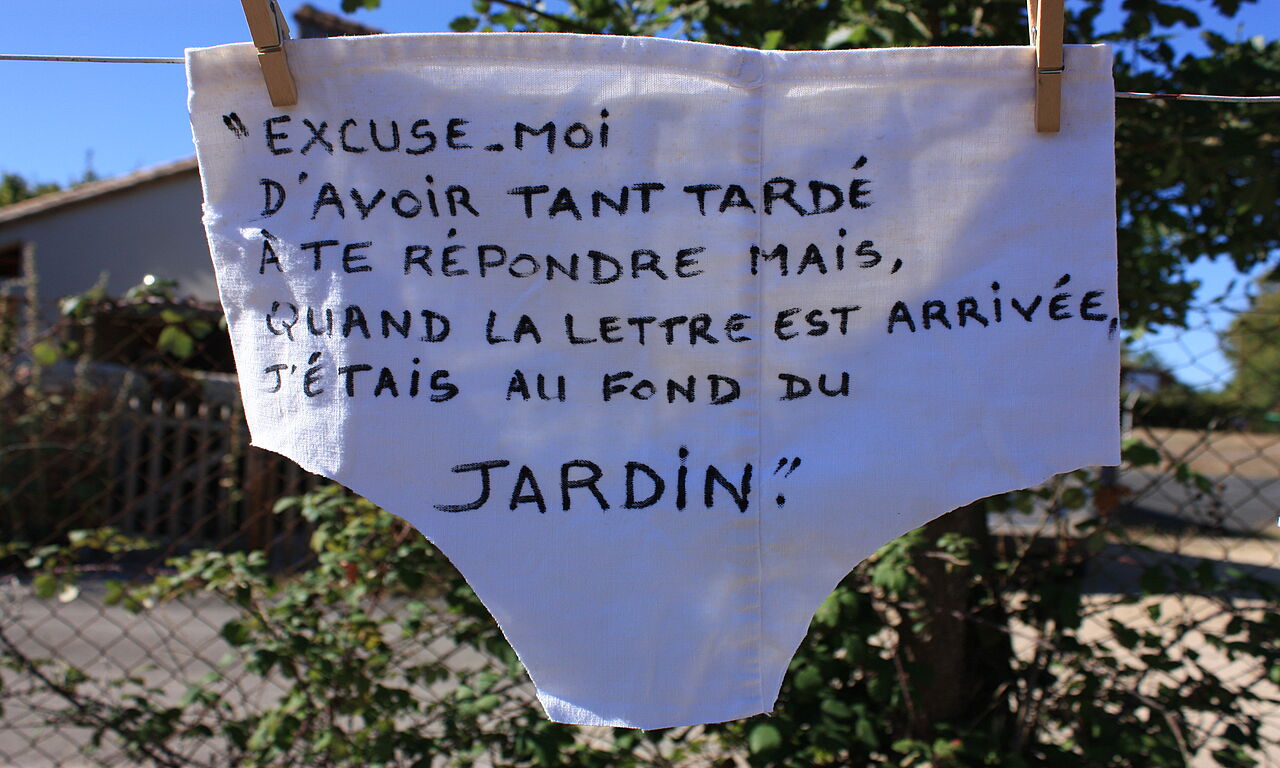 "EXCUSE-MOi
D'AVOiR TANT TARDÉ
À TE RÉPONDRE MAiS,
QUAND LA LETTRE EST ARRiVÉE,
J'ÉTAiS AU FOND DU
JARDiN."